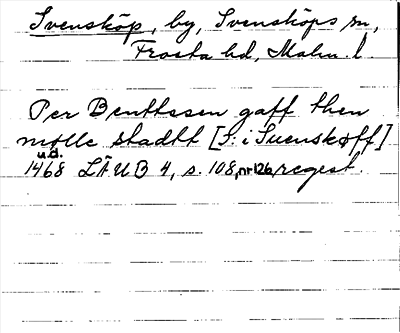 Svensköp, by, Svensköps sn,
Frosta hd, Malm. l.
Per Benttssen gaff then
mølle stadtt [S: i Suenskøff]
u.d.
1468 LÄUB 4, s. 108, nr 126, regest.